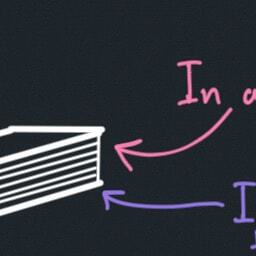 In a
I